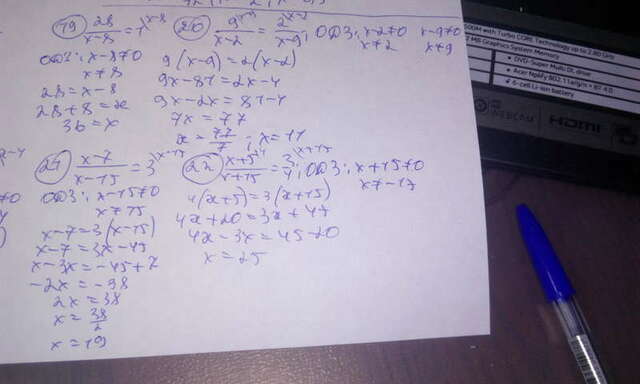 19) 28/(x-8) = 1 \x-8
ОДЗ: x-8≠0
x≠8
28=x-8
28+8=x
36=x
20) 9 \x-9/(x-2) = 2 \x-2/(x-9); ОДЗ: x-2≠0 x-9≠0
x≠2 x≠9
9(x-9)=2(x-2)
9x-81=2x-4
9x-2x=81-4
7x=77
x=77/7; x=11
21) (x-7)/(x-15) = 3 \x-15
ОДЗ: x-15≠0
x≠15
x-7=3(x-15)
x-7=3x-45
x-3x=-45+7
-2x=-38
2x=38
x=38/2
x=19
22) (x+5)/(x+15) = 3/4; ОДЗ: x+15≠0
x≠-15
4(x+5)=3(x+15)
4x+20=3x+45
4x-3x=45-20
x=25
500M with Turbo CORE Technology up to 2.80 GHz
MB Graphics System Memory
• DVD-Super Multi DL drive
• Acer Nplify 802.11a/g/n + BT 4.0
• 6-cell Li-ion battery
WEBCAM
HDMI